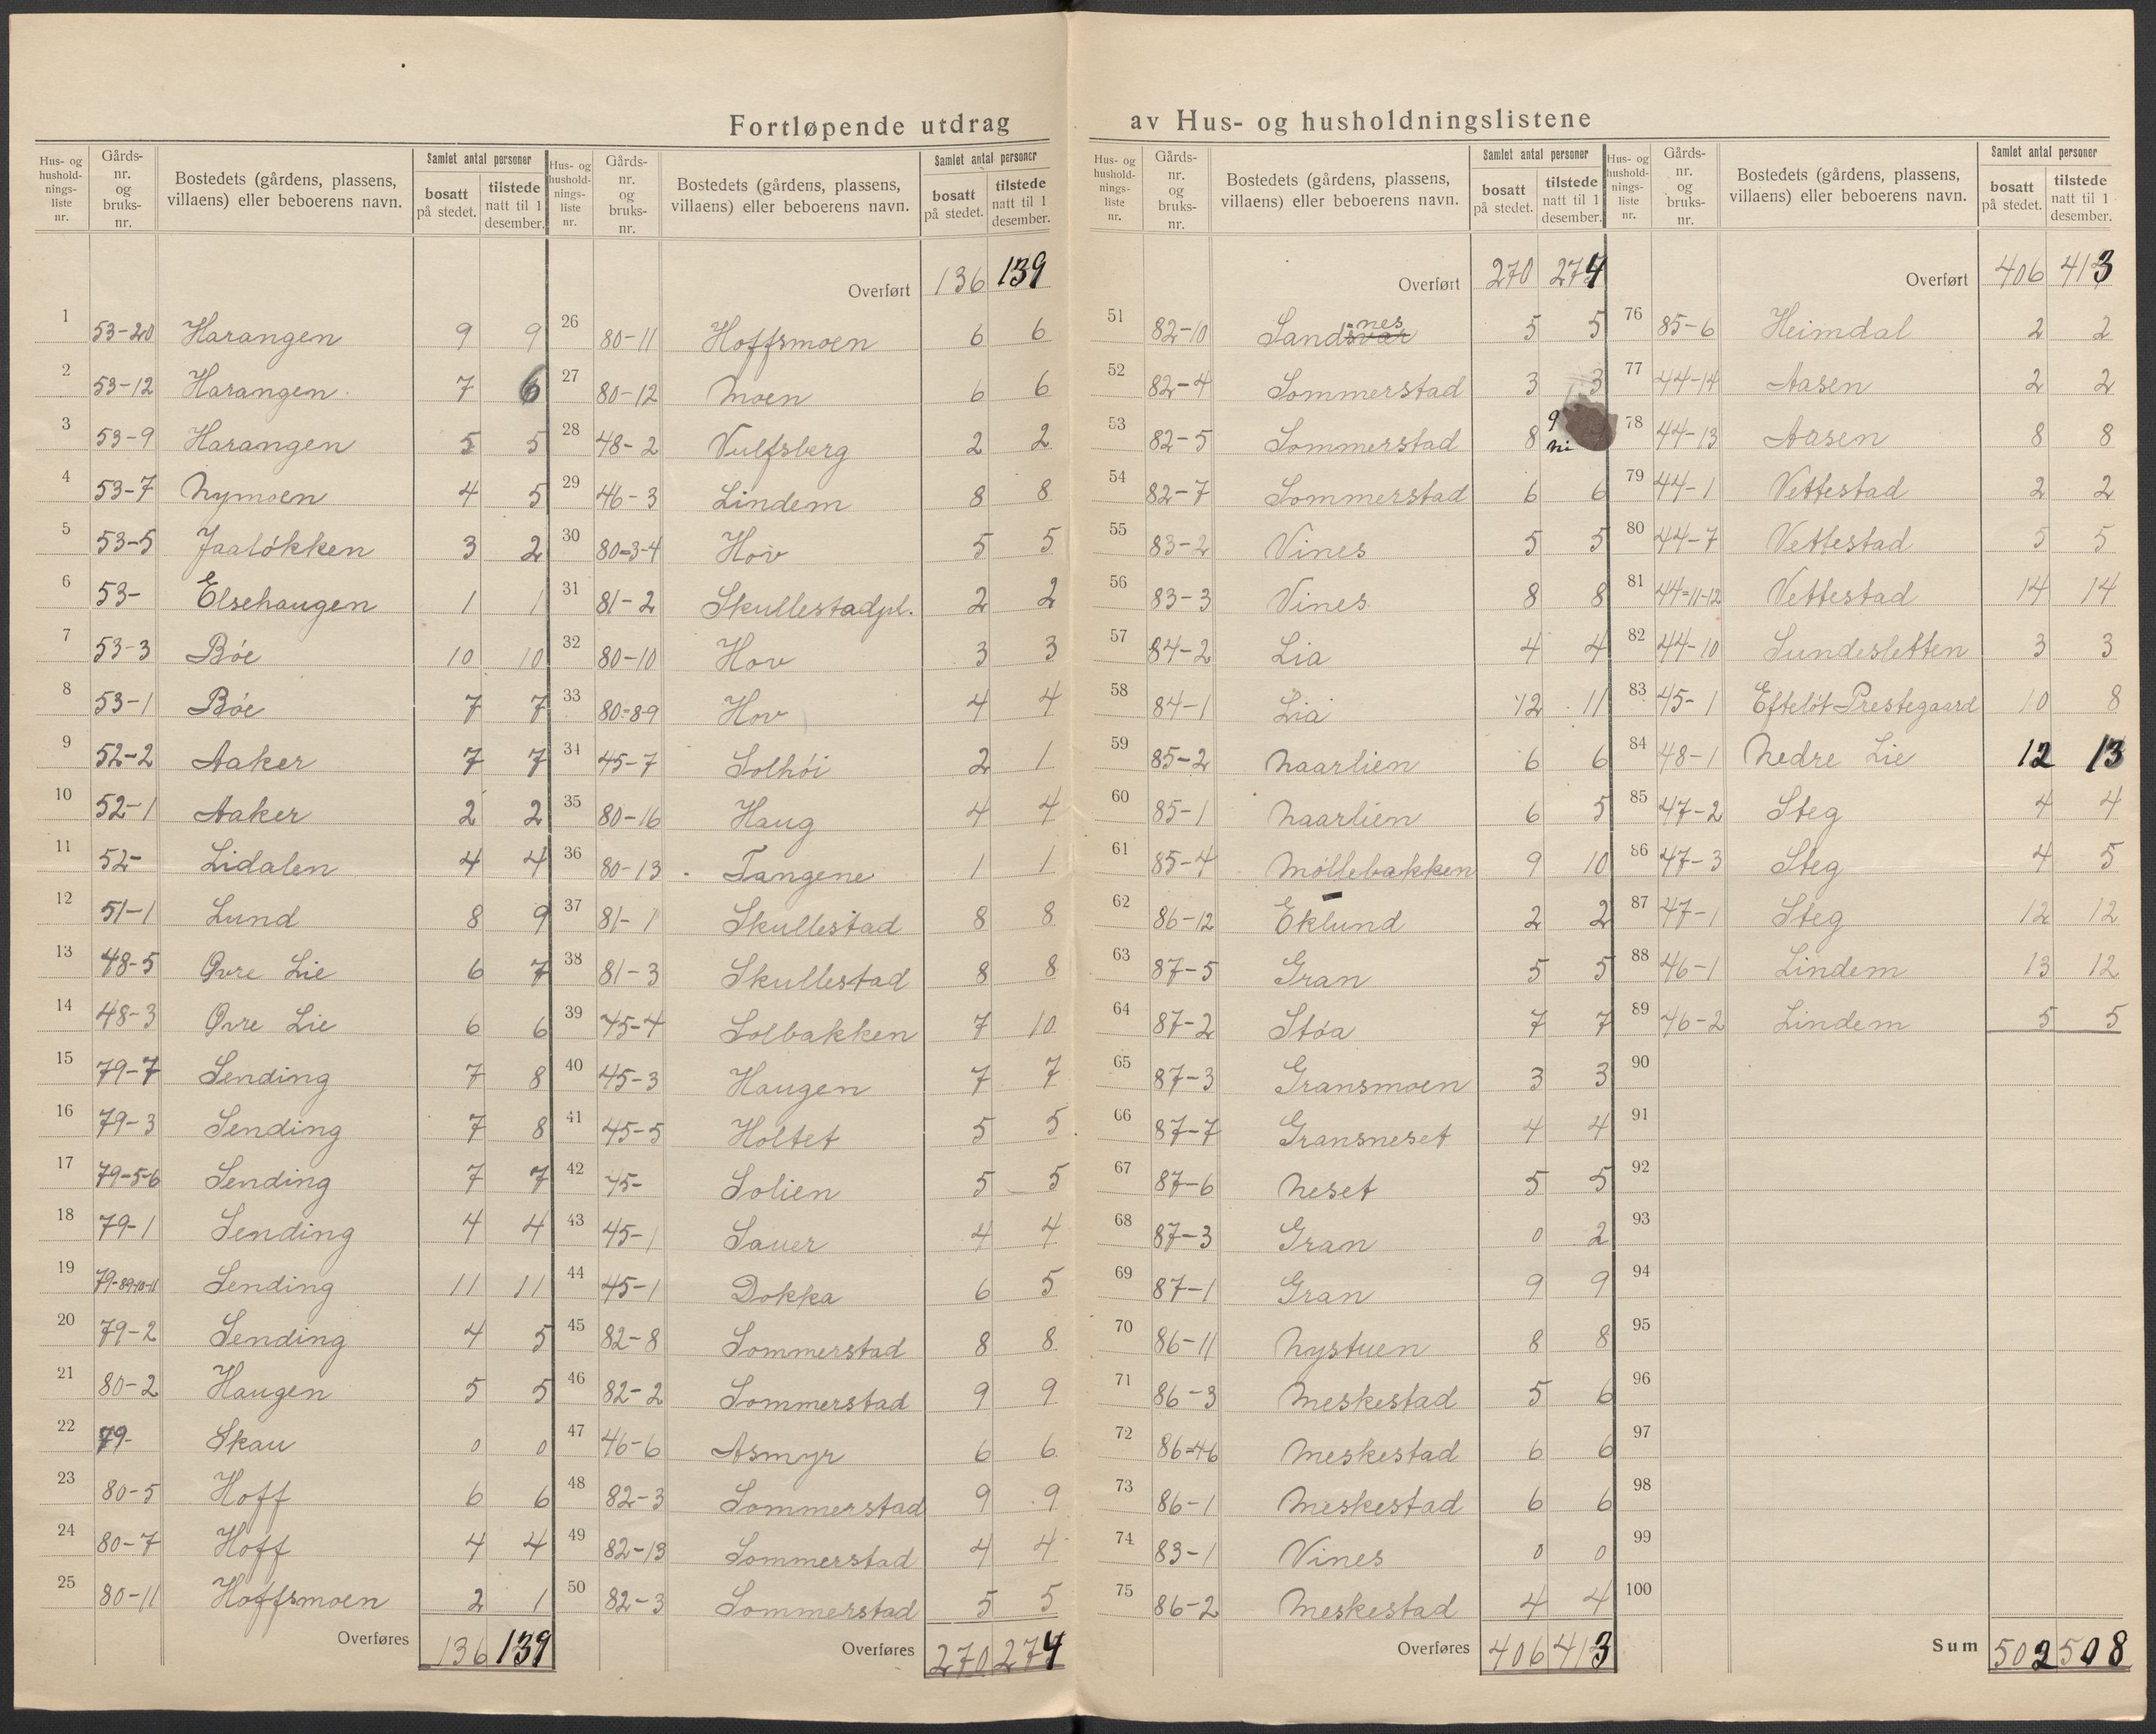 Fortløpende utdrag av Hus- og husholdningslistene
Hus- og hushold- nings- liste nr. | Gårds- nr. og bruks- nr. | Bostedets (gårdens, plassens, villaens) eller beboerens navn. | Samlet antal personer | bosatt på stedet. | tilstede natt til 1 desember.
1 53-20 Harangen 9 9
2 53-12 Harangen 7 6
3 53-9 Harangen 5 5
4 53-7 Nymoen 4 5
5 53-5 Jaaløkken 3 2
6 53- Elsehaugen 1 1
7 53-3 Bøe 10 10
8 53-1 Bøe 7 7
9 52-2 Aaker 7 7
10 52-1 Aaker 2 2
11 52- Lidalen 4 4
12 51-1 Lund 8 9
13 48-5 Øvre Lie 6 7
14 48-3 Øvre Lie 6 6
15 79-7 Sending 7 8
16 79-3 Sending 7 8
17 79-5-6 Sending 7 7
18 79-1 Sending 4 4
19 79-8-9-10-11 Sending 11 11
20 79-2 Sending 4 5
21 80-2 Haugen 5 5
22 79- Skau 0 0
23 80-5 Hoff 6 6
24 80-7 Hoff 4 4
25 80-11 Hoffsmoen 2 1
Overføres 136 139
Hus- og hushold- nings- liste nr. | Gårds- nr. og bruks- nr. | Bostedets (gårdens, plassens, villaens) eller beboerens navn. | Samlet antal personer | bosatt på stedet. | tilstede natt til 1 desember.
Overført 136 139
26 80-11 Hoffsmoen 6 6
27 80-12 Moen 6 6
28 48-2 Vulfsberg 2 2
29 46-3 Lindem 8 8
30 80=3-4 Hov 5 5
31 81-2 Skullestadpl. 2 2
32 80-10 Hov 3 3
33 80=8-9 Hov 4 4
34 45-7 Solhøi 2 1
35 80-16 Haug 4 4
36 80-13 Tangene 1 1
37 81-1 Skullestad 8 8
38 81-3 Skullestad 8 8
39 45-4 Solbakken 7 10
40 45-3 Haugen 7 7
41 45-5 Holtet 5 5
42 45- Solien 5 5
43 45-1 Sauer 4 4
44 45-1 Dokka 6 5
45 82-8 Sommerstad 8 8
46 82-2 Sommerstad 9 9
47 46-6 Asmyr 6 6
48 82-3 Sommerstad 9 9
49 82-13 Sommerstad 4 4
50 82-3 Sommerstad 5 5
Overføres 270 274
Hus- og hushold- nings- liste nr. | Gårds- nr. og bruks- nr. | Bostedets (gårdens, plassens, villaens) eller beboerens navn. | Samlet antal personer | bosatt på stedet. | tilstede natt til 1 desember.
Overført 270 274
51 82-10 Sandsvær nes 5 5
52 82-4 Sommerstad 3 3
53 82-5 Sommerstad 8 9 ni
54 82-7 Sommerstad 6 6
55 83-2 Vines 5 5
56 83-3 Vines 8 8
57 84-2 Lia 4 4
58 84-1 Lia 12 11
59 85-2 Naarlien 6 6
60 85-1 Naarlien 6 5
61 85-4 Møllebakken 9 10
62 86-12 Eklund 2 2
63 87-5 Gran 5 5
64 87-2 Støa 7 7
65 87-3 Gransmoen 3 3
66 87-7 Gransneset 4 4
67 87-6 Neset 5 5
68 87-3 Gran 0 2
69 87-1 Gran 9 9
70 86-11 Nystuen 8 8
71 86-3 Meskestad 5 6
72 86=4-6 Meskestad 6 6
73 86-1 Meskestad 6 6
74 83-1 Vines 0 0
75 86-2 Meskestad 4 4
Overføres 406 413
Hus- og hushold- nings- liste nr. | Gårds- nr. og bruks- nr. | Bostedets (gårdens, plassens, villaens) eller beboerens navn. | Samlet antal personer | bosatt på stedet. | tilstede natt til 1 desember.
Overført 406 413
76 85-6 Heimdal 2 2
77 44-14 Aasen 2 2
78 44-13 Aasen 8 8
79 44-1 Vettestad 2 2
80 44-7 Vettestad 5 5
81 44=11-12 Vettestad 14 14
82 44-10 Sundesletten 3 3
83 45-1 Efteløt Prestegaard 10 8
84 48-1 Nedre Lie 12 13
85 47-2 Steg 4 4
86 47-3 Steg 4 5
87 47-1 Steg 12 12
88 46-1 Lindem 13 12
89 46-2 Lindem 5 5
90
91
92
93
94
95
96
97
98
99
100
Sum 502 508